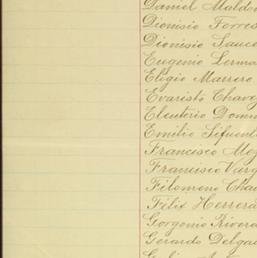 Daniel Maldo
Dionisio Torres
Dionisio Sauce
Eugenio Lerma
Eligio Marrero
Evaristo Chavez
Eleuterio Domin
Emilio Sifuent
Francisco Mej
Francisco Varg
Filomeno Chav
Felix Herrera
Gorgonio Rivera
Gerardo Delgad